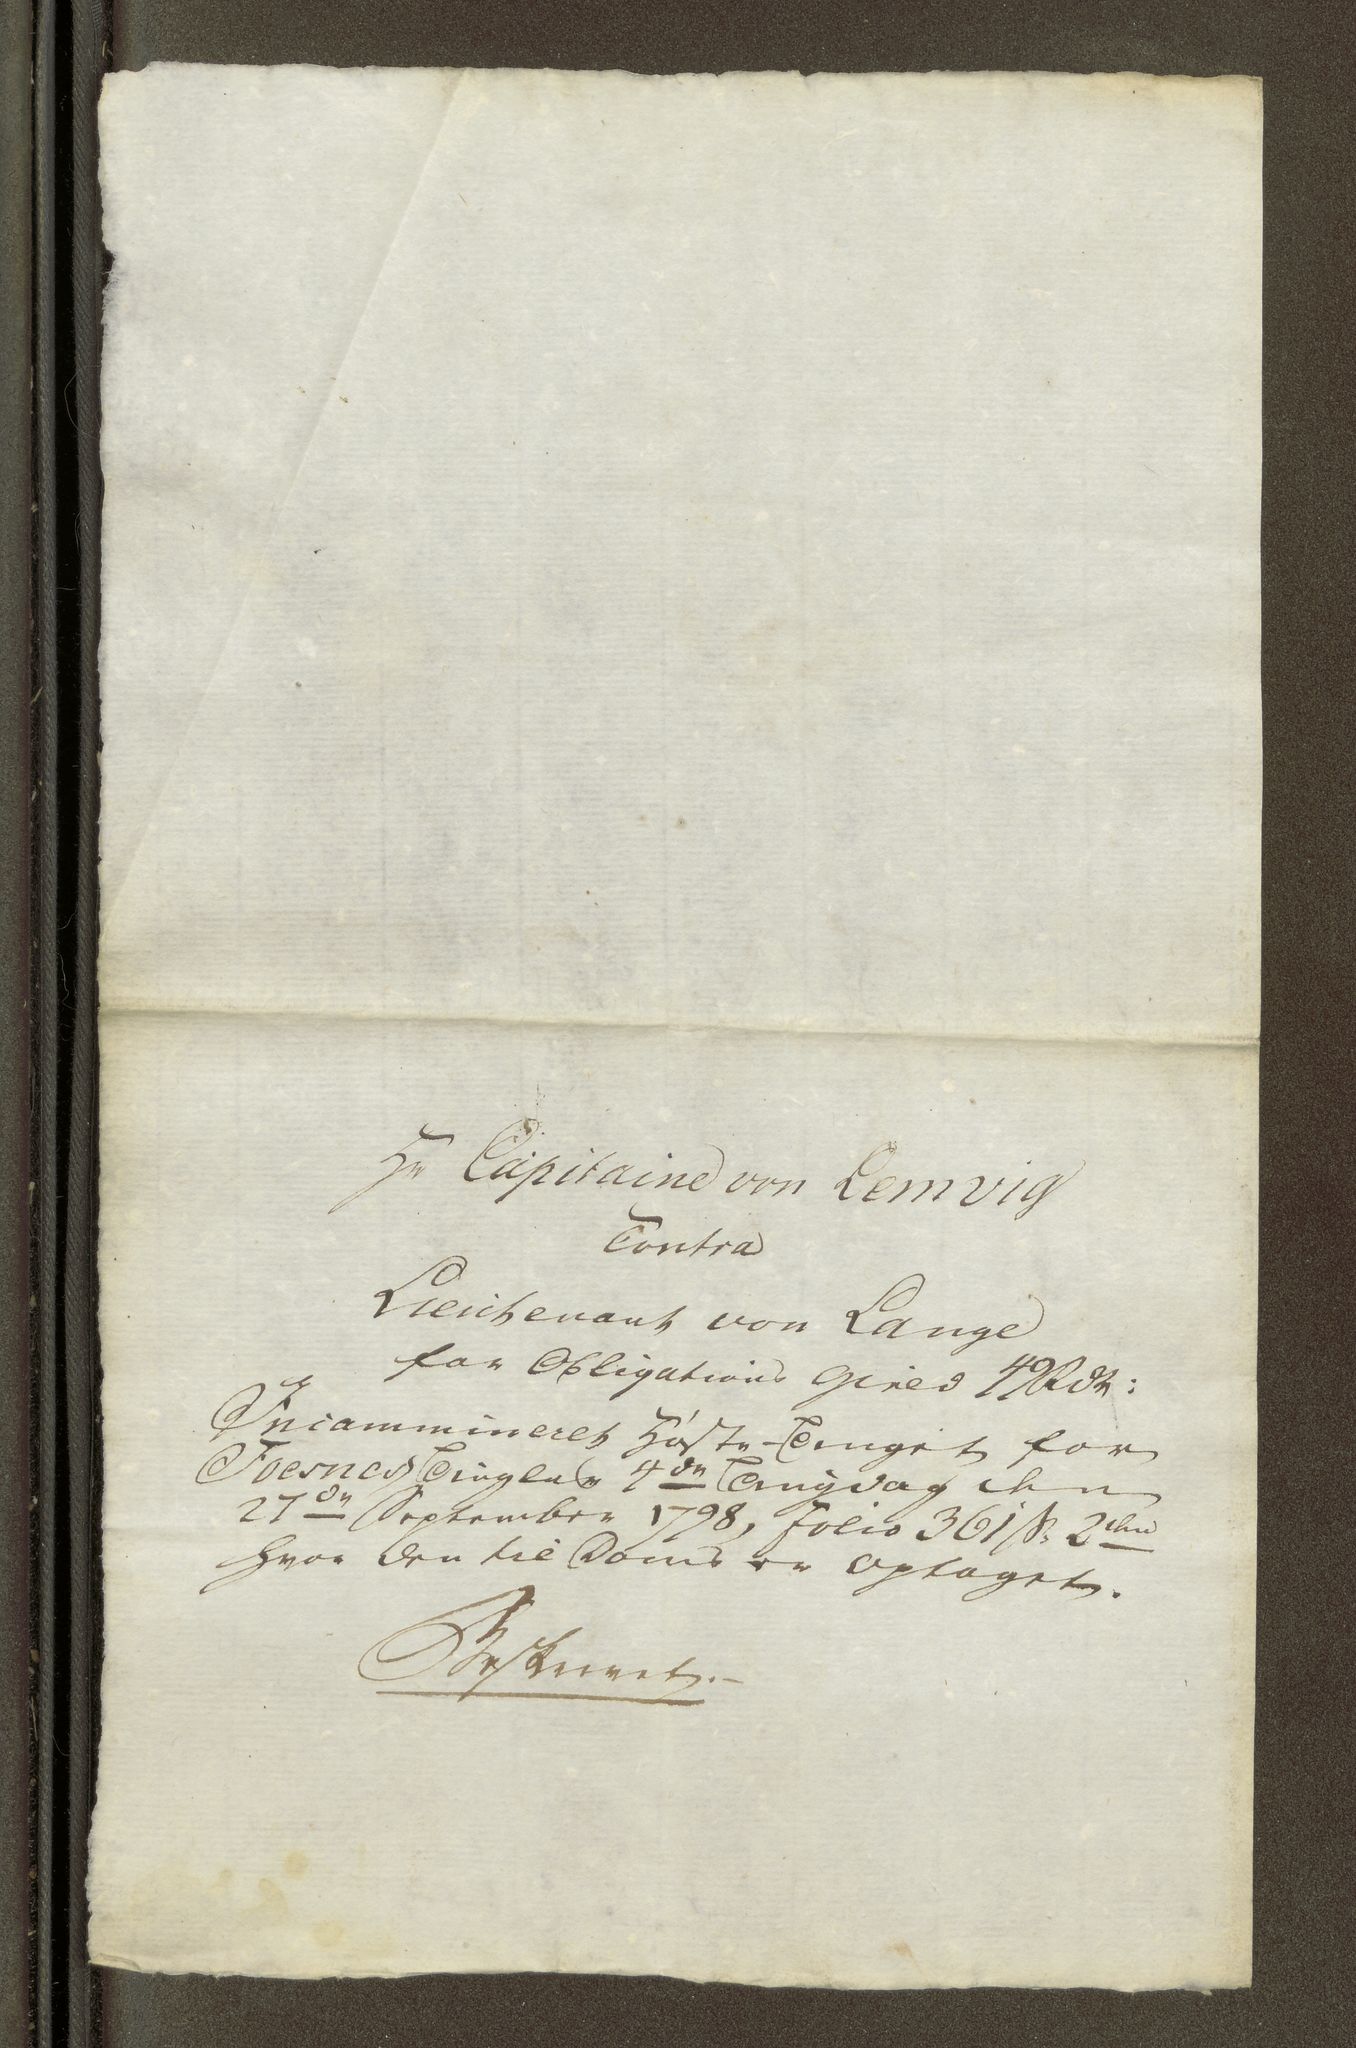 Hr Capitaine von Lemvig
Contra
Lieutenant von Lange
for Obligations Gield 49 Rdr:
Incammineret Høste-Tinget for
Foesnes Tinglau 4de Tingdag den
27de September 1798, Folio 361 Sr 2den
hvor den til Doms er optaget.
Beskrevet.-